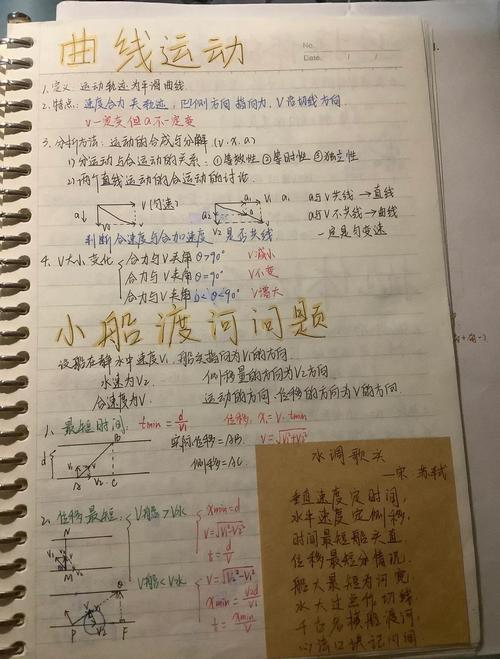 曲线运动
No.
Date. / /
1.定义:运动轨迹为平滑曲线.
2.特点:速度合力夹轨迹,凹侧方向指向力,V沿切线方向.
V一定变但a不一定变
3.分析方法:运动的合成与分解(v.x.a)
1)分运动与合运动的关系:①等效性②等时性③独立性
2)两个直线运动的合运动的讨论.
a↓ V(匀速) V2 V1 a1 a
a与V共线→直线
a与V不共线→曲线
一定是匀变速
判断合速度与合加速度是否共线
4.V大小变化
合力与V夹角θ>90° V减小
合力与V夹角θ=90° V不变
合力与V夹角0<θ<90° V增大
小船渡河问题
设船在静水中速度V1,船头指向为V1的方向.
水速为V2. 侧移量的方向为V2方向
合速度为V. 运动的方向.位移的方向为V的方向.
1、最短时间: tmin=d/V1 位移 x=V·tmin
实际位移=AB. V=√V1²+V2²
侧移=AC.
d V1 V V2 A B C
2、位移最短:
V船>V水
xmin=d
V=√V1²-V2²
t=d/V
N M
V船<V水
V=√V2²-V1²
xmin=V2d/V1
t=xmin/V
P Q F V2
水调歌头
—宋 苏轼
垂直速度定时间,
水平速度定侧移.
时间最短船头直.
位移最短分情况.
船大最短为河宽
水大过点作切线
千古名校船渡河.